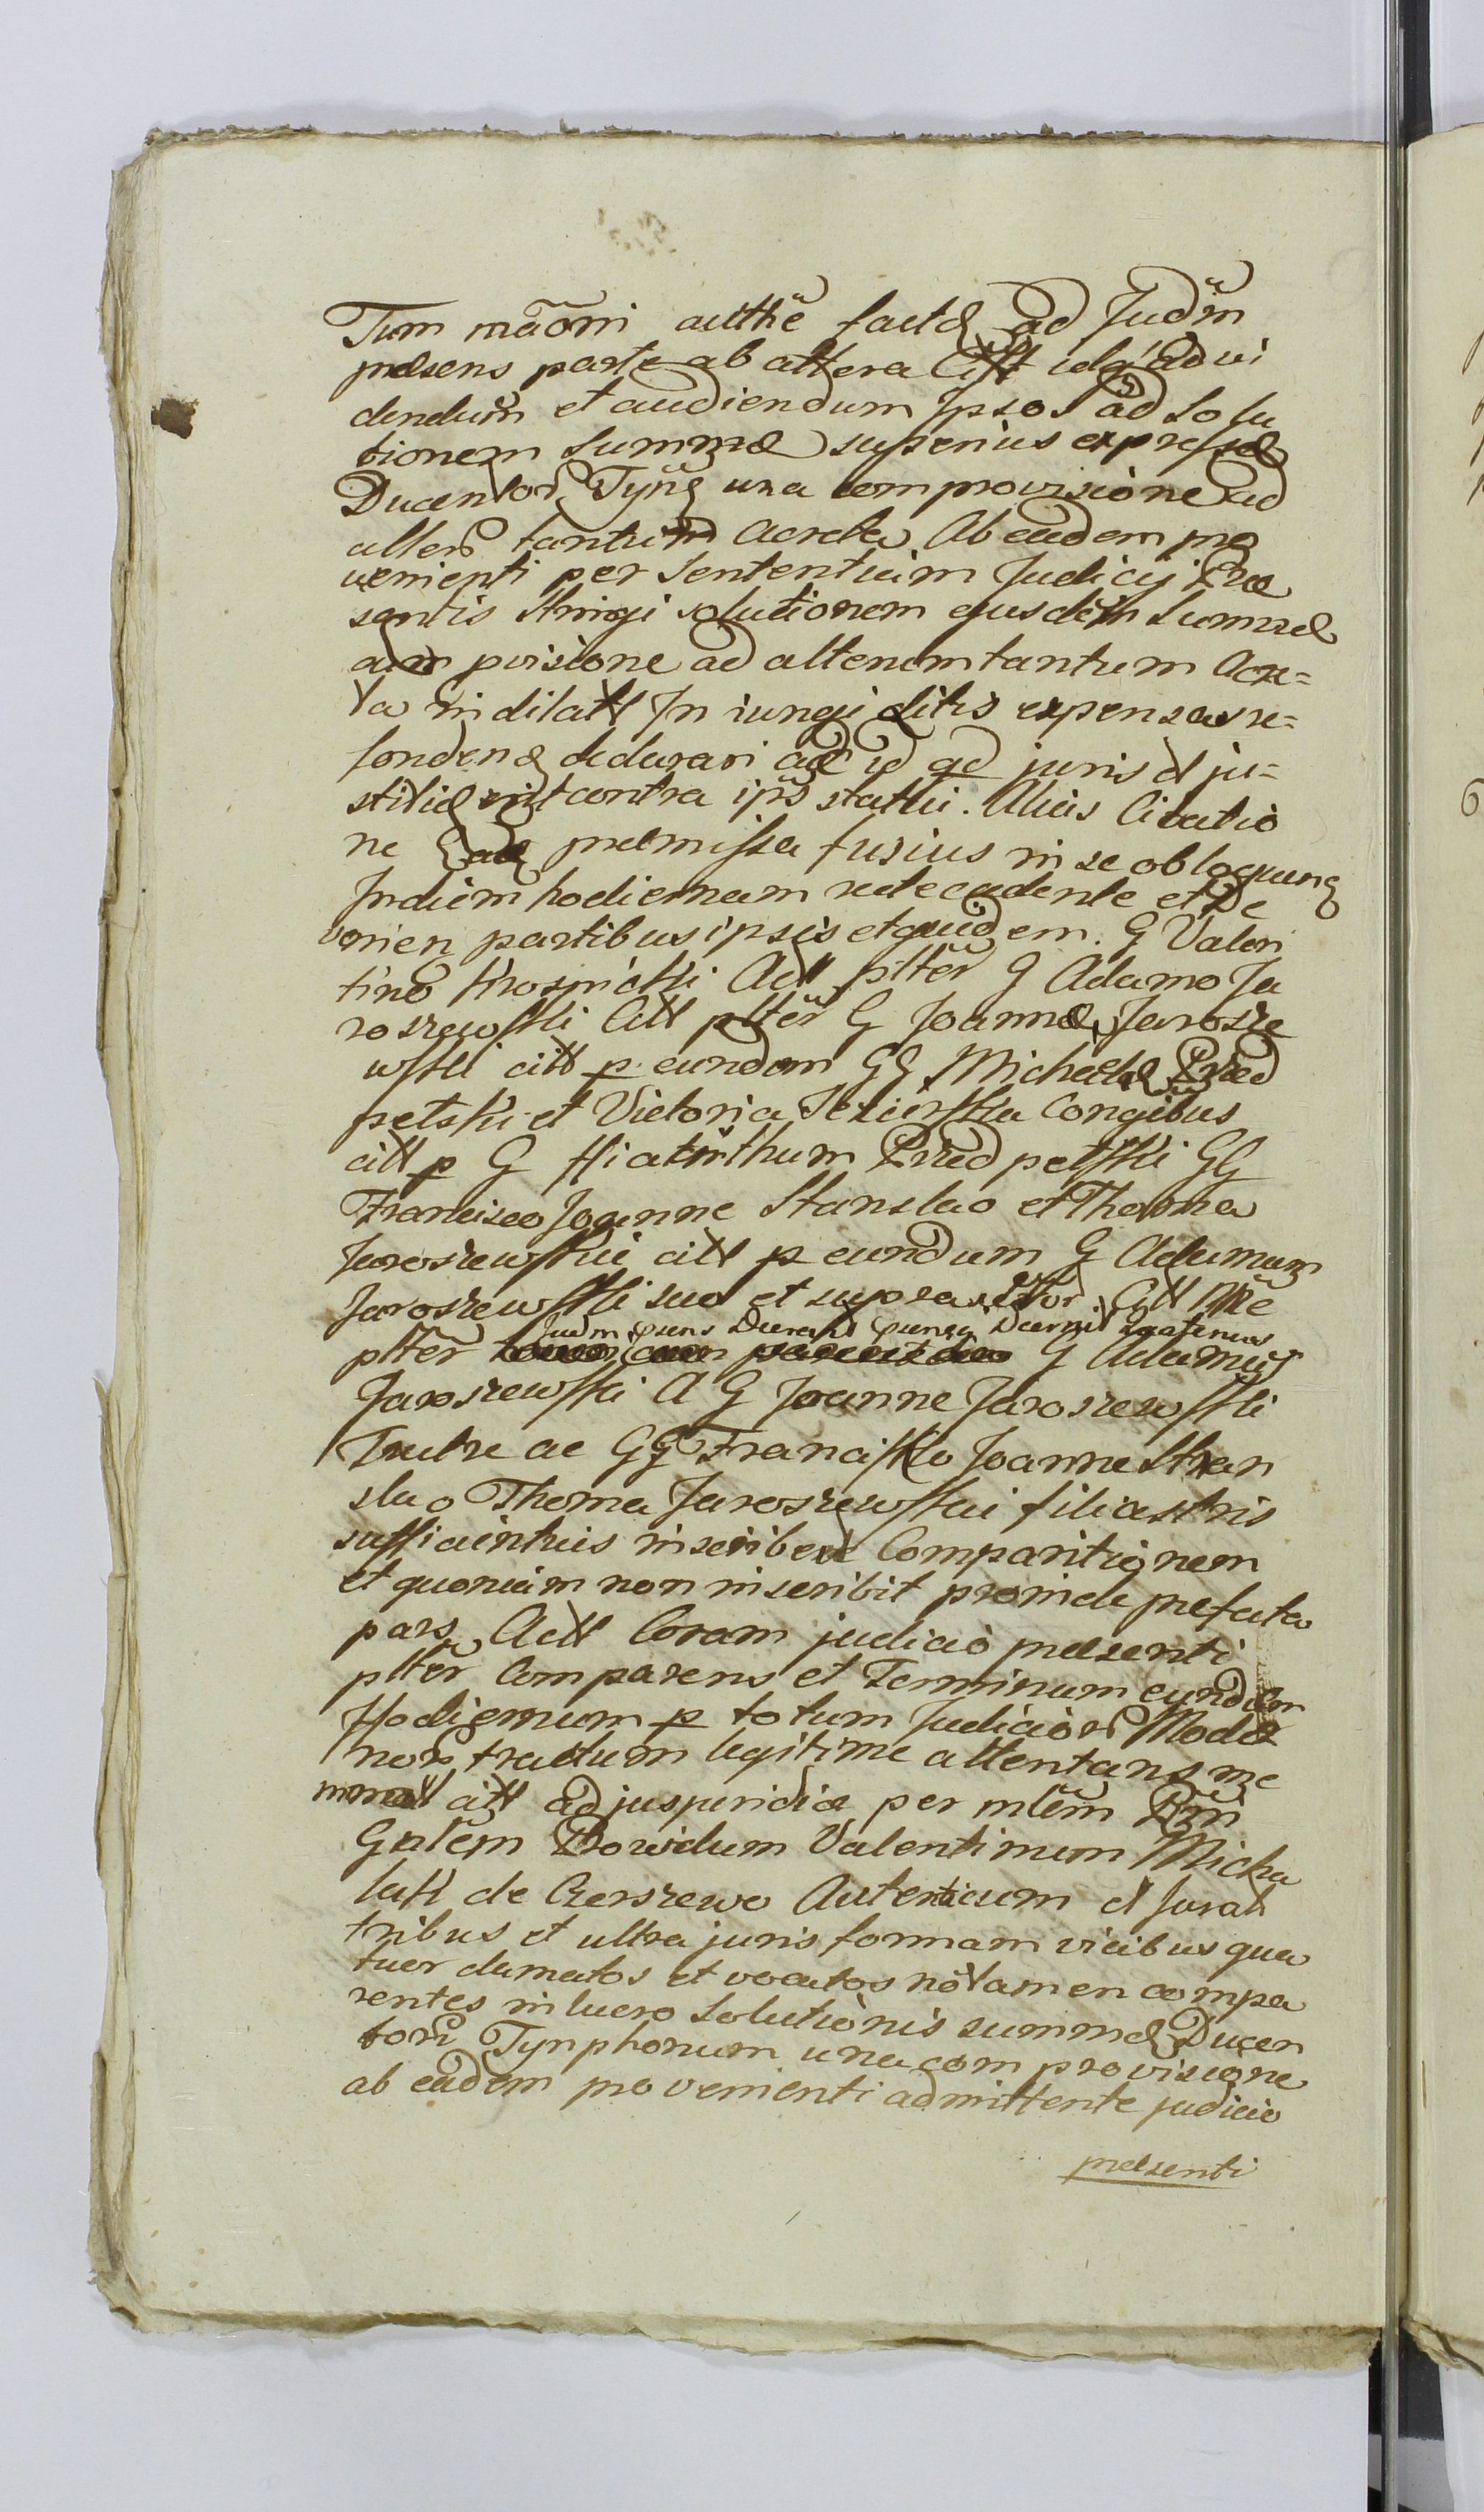 Tum mãoni authẽ factæ ad Judm̃
præsens parte ab altera Citt velq́ advi
dendum et audiendum Ipsos ad Solu
tionem Summæ superius expressæ
Ducentor Tynf una com provisione ad
alterũ tantum acreta Ab eadem pro
venienti per Sententiam Judicij Præ
sentis Stringi solutionem ejusdem Summæ
cum pvisione ad alterum tantum Acre=
ta indilatt Injungi Litis expensas re=
fondend declarari aliæ id qd juris et ju=
stitiæ erit contra ip̃s stattui. Alias Citatio
ne præmissa fusius in se obloquens
In diem hodiernam rite cadente et de
venien partibus ipsis et quidem. G Valen
tino Krosnicki Actt pltẽr G Adamo Ja
roszewski Citt pltẽr G Joanne Jarosze
wski citt p eundem GG Michaele Przed
petski et Victoria Jezierska Conjgibus
citt p G Hiacinthum Przedpetski GG
Francisco Joanne Stanslao et Thoma
Jaroszewskie citt p eundum G Adamum
Jaroszewski suo et supra Citt Nõe
Judm præns Decrevit Quatenus
pltẽr G Adamus
Jaroszewski A G Joanne Jaroszewski
Fratre ac GG Francisko Joanne Stan
slao Thoma Jaroszewskie filiastris
sufficientius inscribere Comparitionem
et quoniam non inscribit proinde prefata
pars Actt Coram judicio præsenti
pltẽr Comparens et Terminum eundem
Hodiernum p totum Judicior Moder
nor tractum legitime attentans me
moratt citt ad jusjuridia per mlẽm Rñi
Gnlẽm Providum Valentinum Micha
lak de Czerszewo Autenticum et Jurat
tribus et ultra juris formam vicibus qua
tuor clamatos et vocatos nõ tamen compa
rentes in lucro Solutionis summæ Ducen
torũ Tynphonum una com provisione
ab eadem provenienti admittente judicio
præsenti